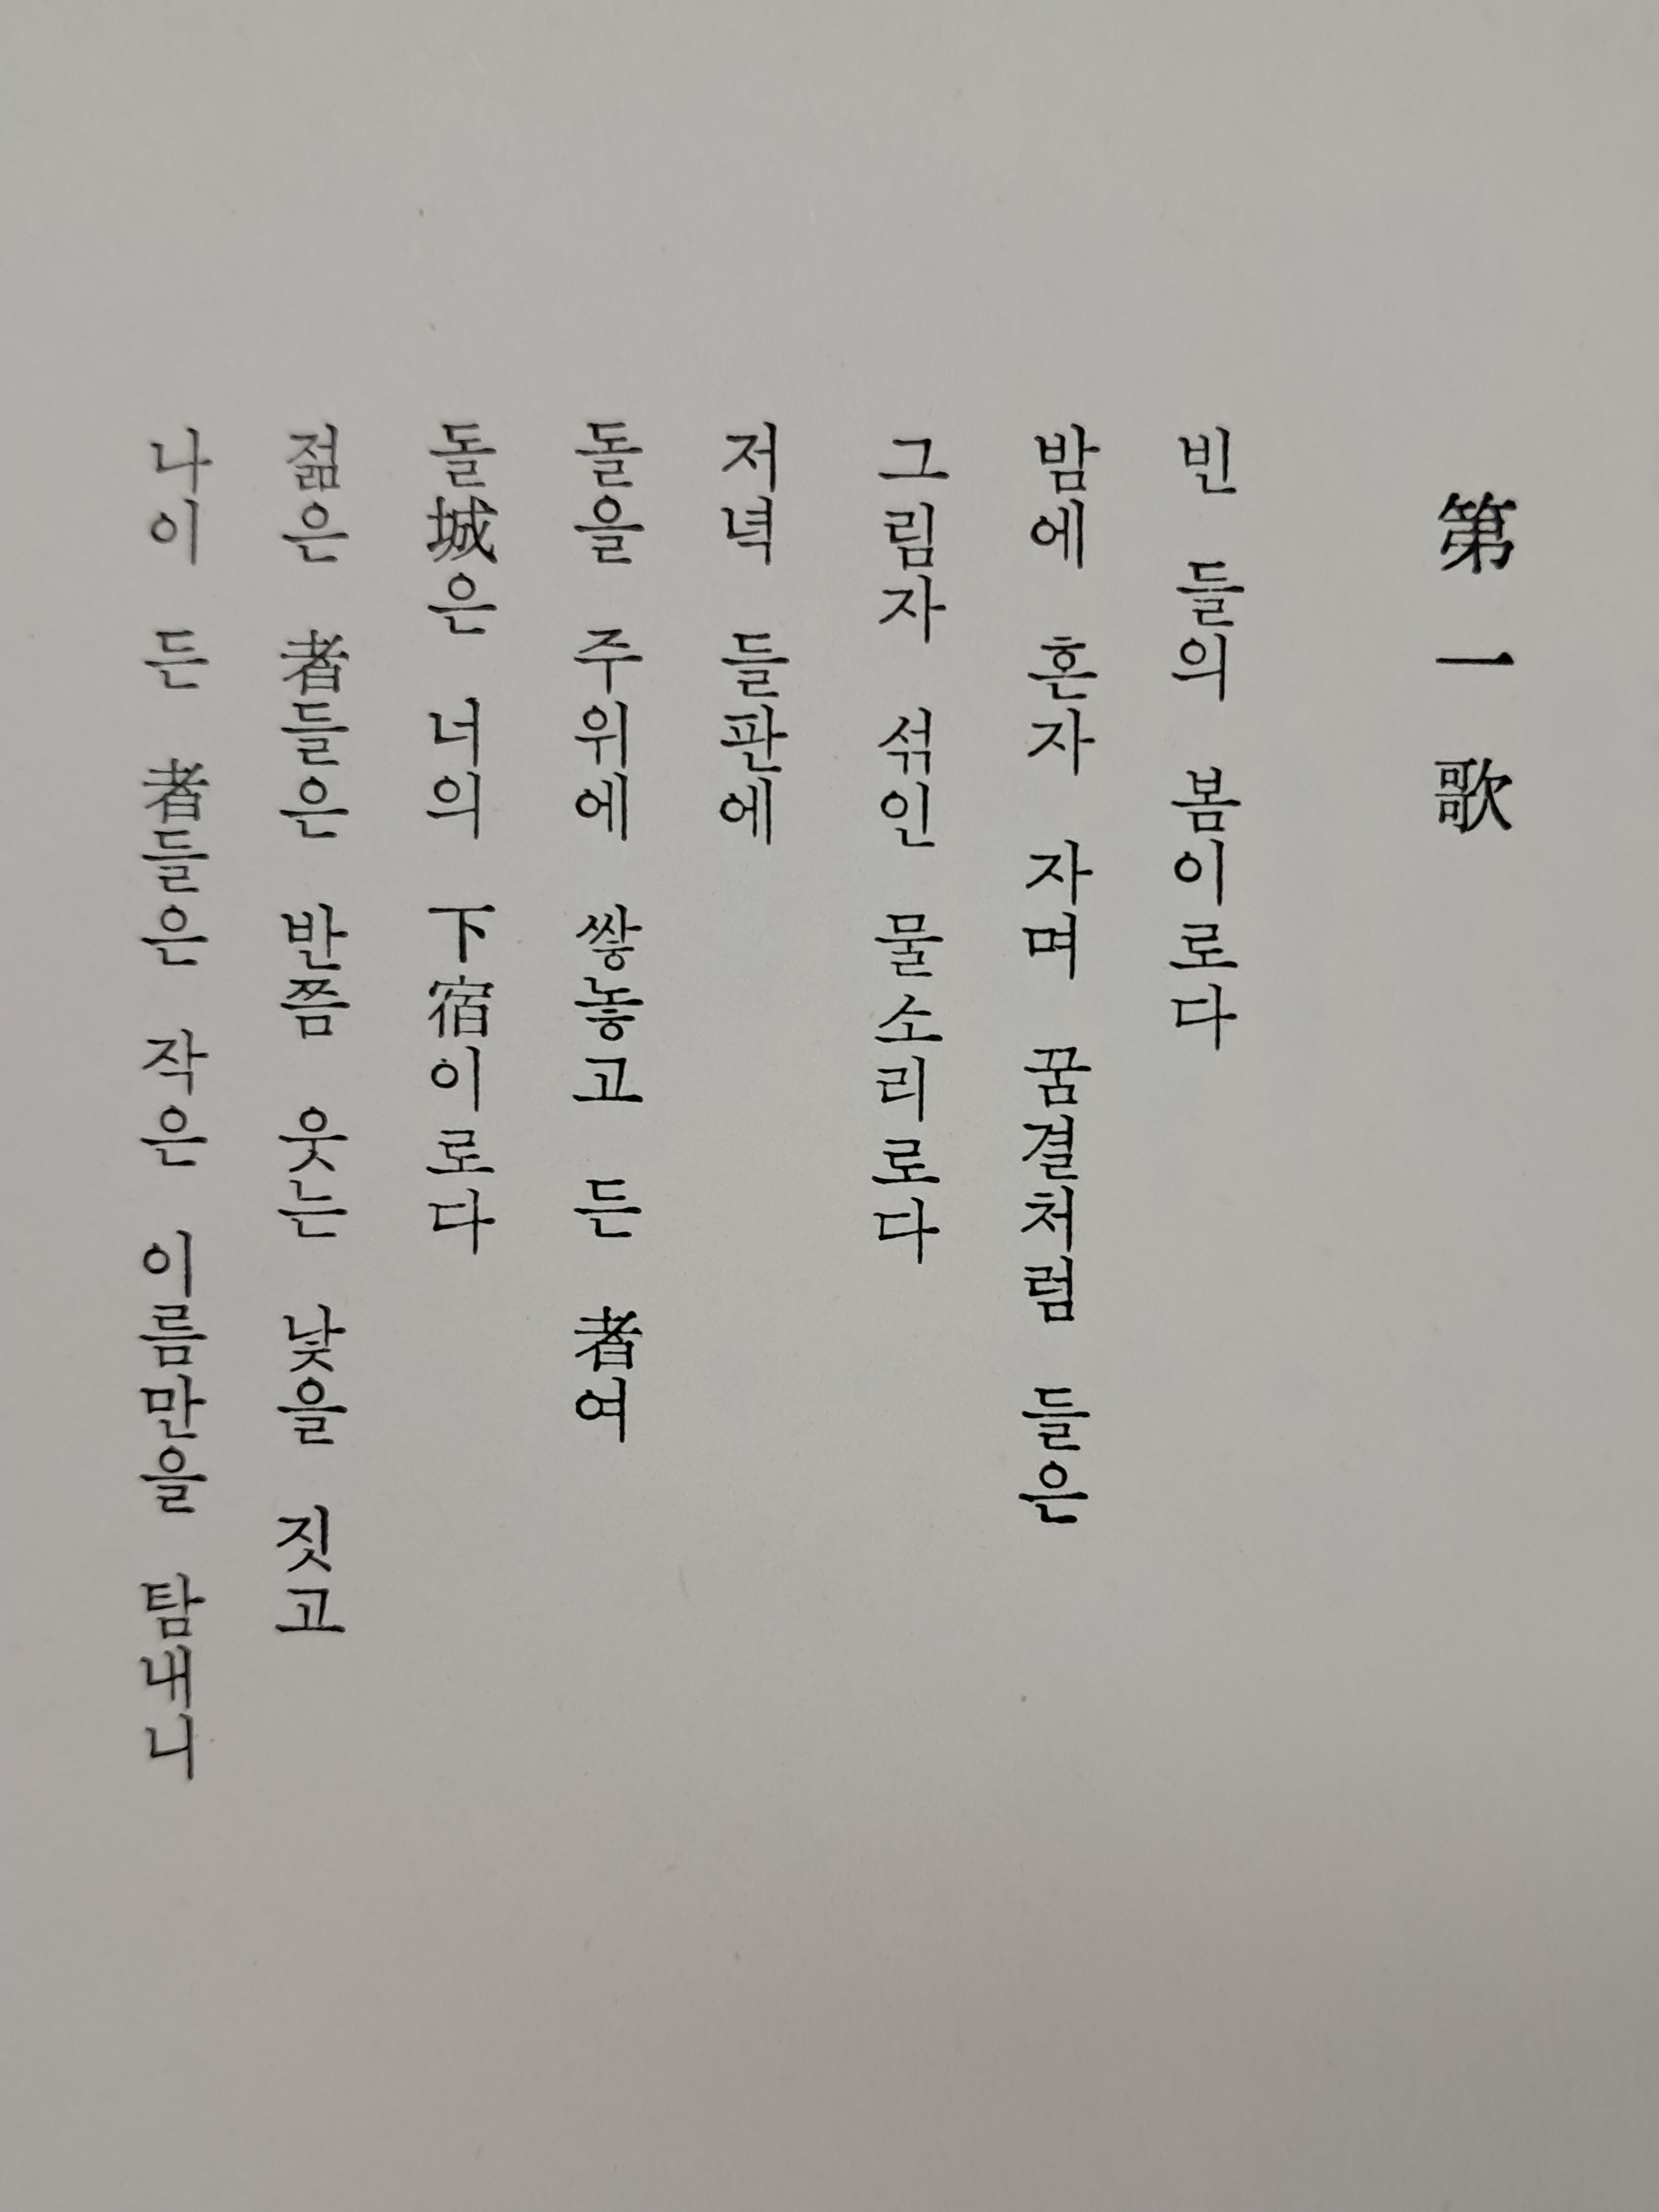 第一歌
빈 들의 봄이로다
밤에 혼자 자며 꿈결처럼 들은
그림자 섞인 물소리로다
저녁 들판에
돌을 주위에 쌓놓고 든 者여
돌城은 너의 下宿이로다
젊은 者들은 반쯤 웃는 낯을 짓고
나이 든 者들은 작은 이름만을 탐내니